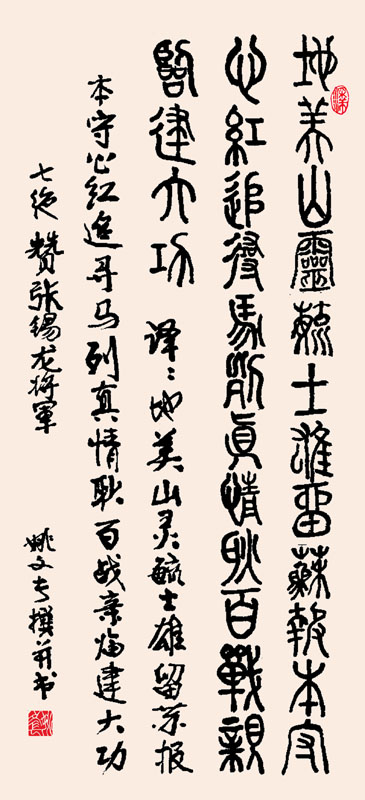 地美山靈毓士雄留蘇報本守
心紅追尋馬列真情耿百戰親
臨建大功 译:地美山灵毓士雄留苏报
本守心红追寻马列真情耿百战亲临建大功
七绝 赞张锡龙将軍 姚文撰并书